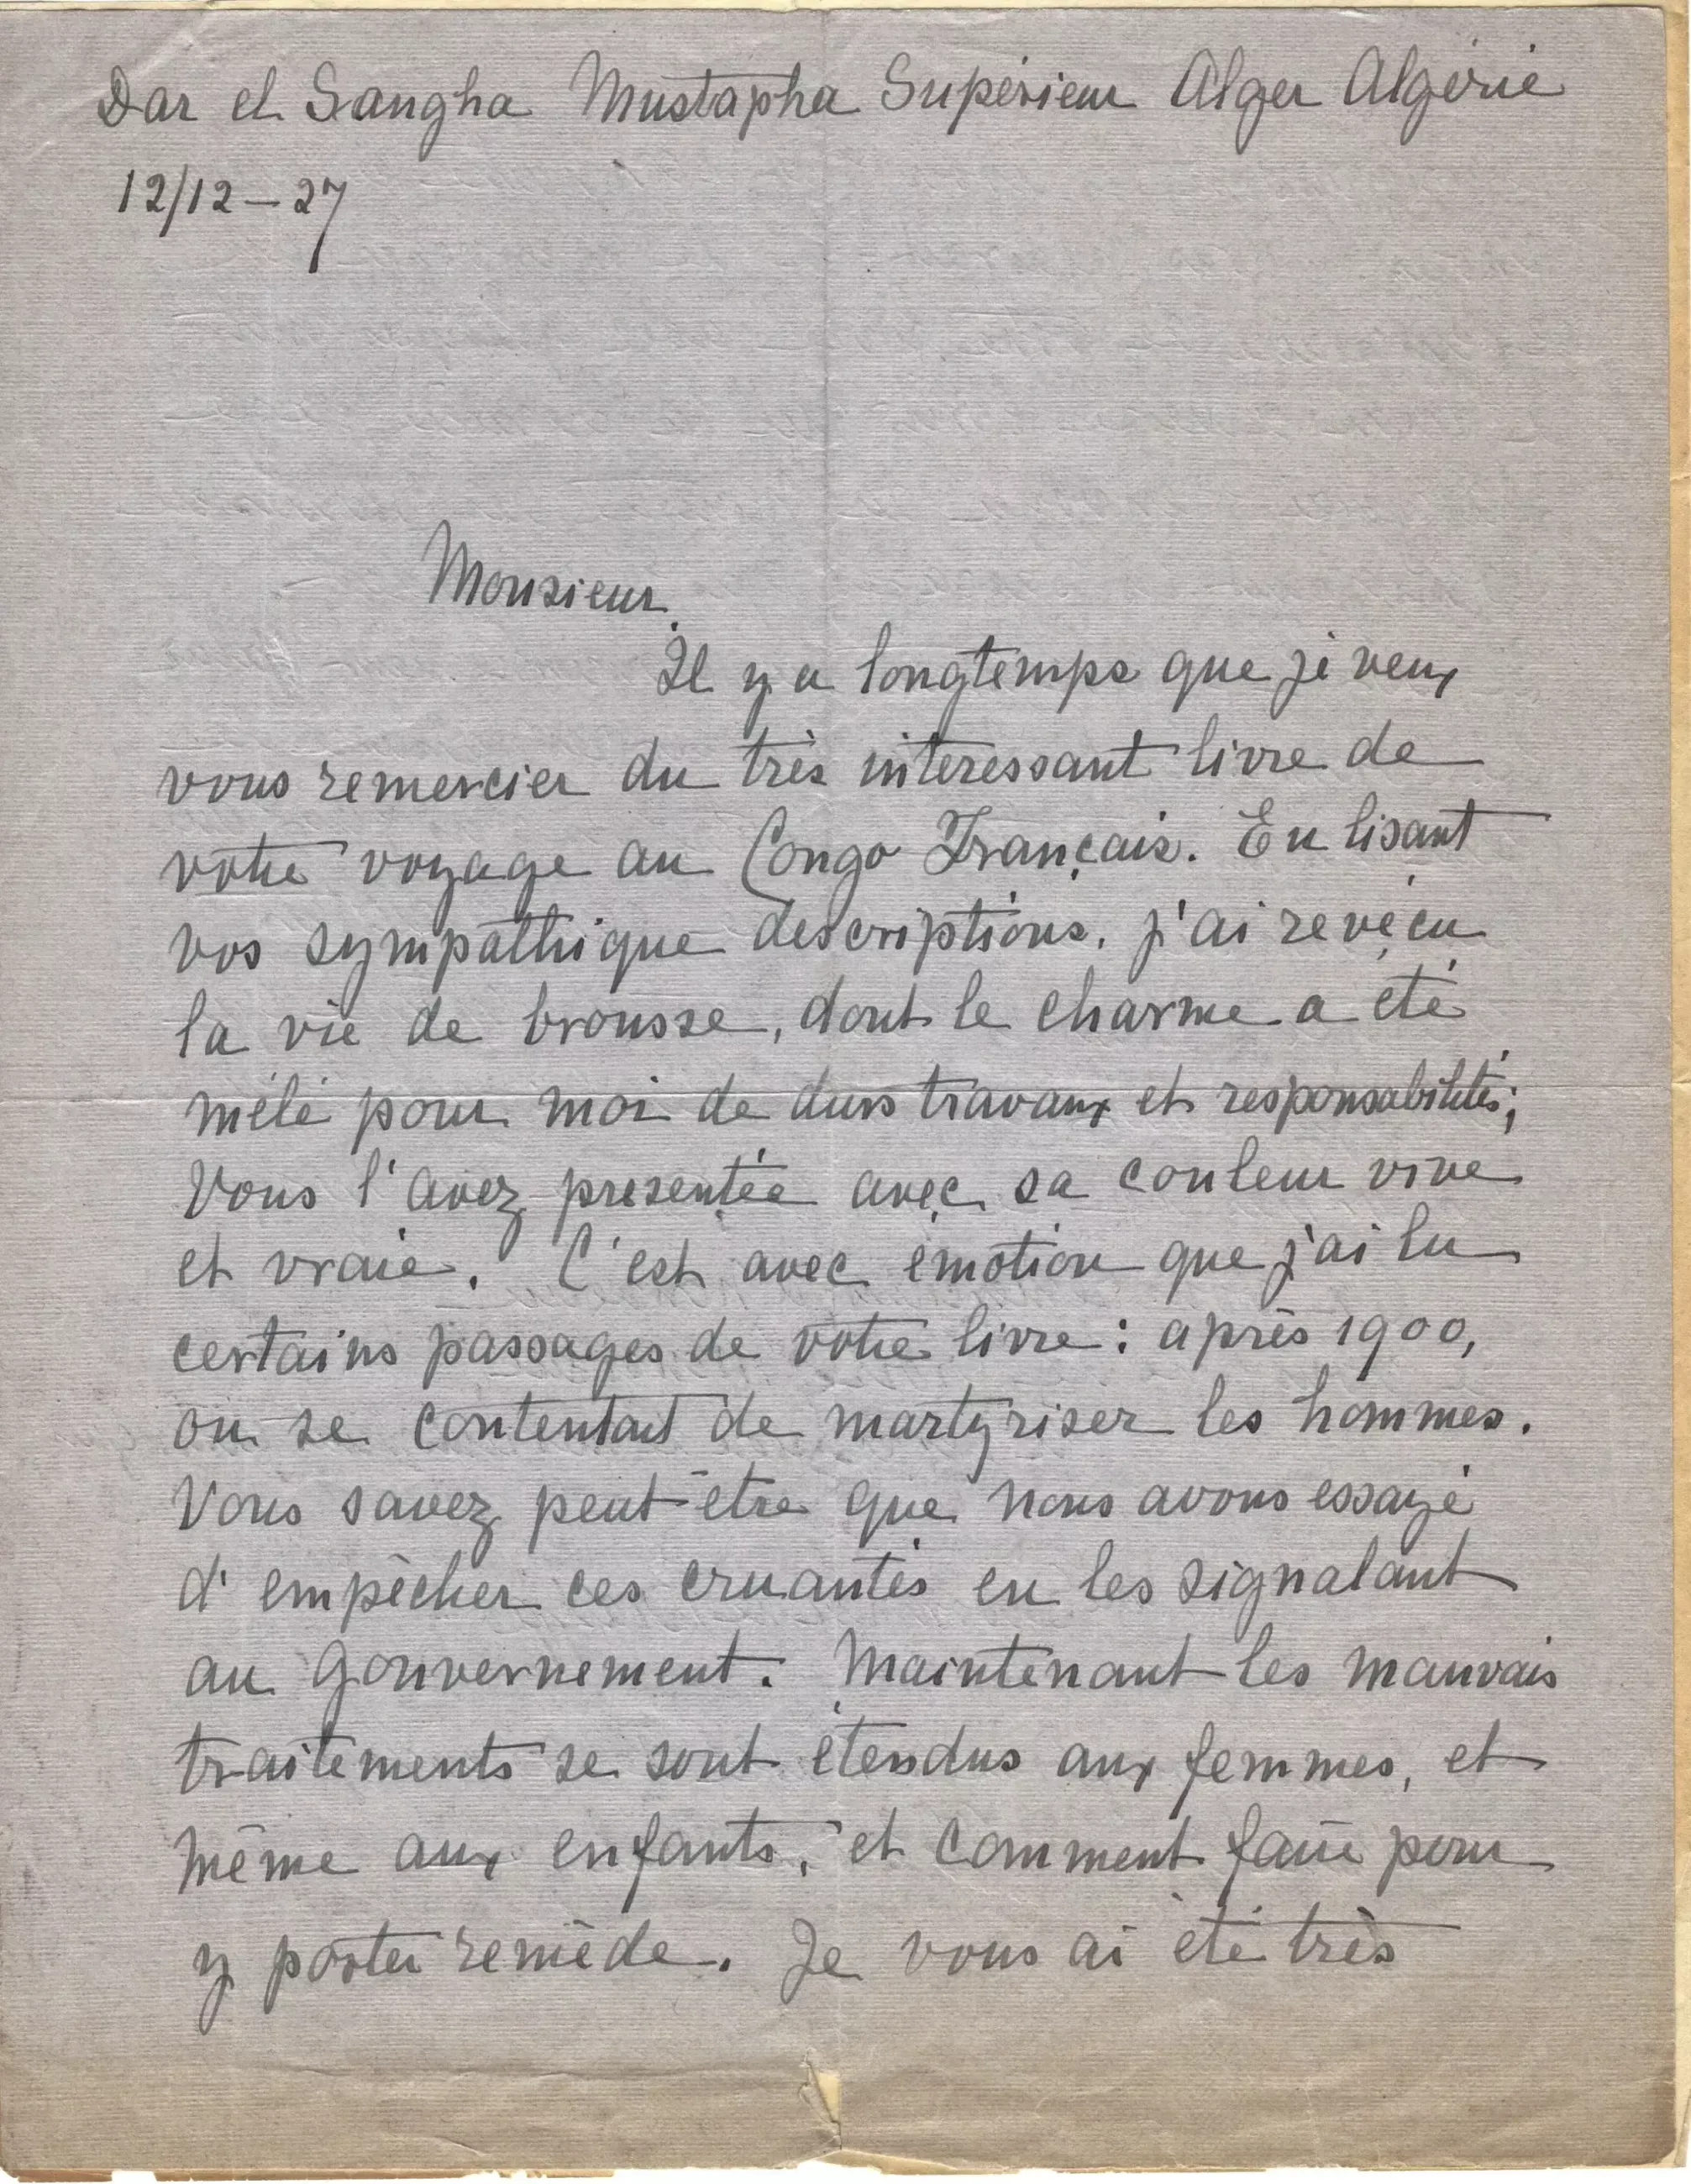 Dar el Sangha Mustapha Supérieur Alger Algérie
12/12-27
Monsieur
Il y a longtemps que je veux
vous remercier du très intéressant livre de
votre voyage au Congo Français. En lisant
vos sympathique descriptions, j'ai revécu
la vie de brousse, dont le charme a été
mêlé pour moi de durs travaux et responsabilités;
Vous l'avez présentée avec sa couleur vive
et vraie. C'est avec émotion que j'ai lu
certains passages de votre livre: après 1900,
on se contentait de martyriser les hommes.
Vous savez peut-être que nous avons essayé
d'empêcher ces cruautés en les signalant
au gouvernement. Maintenant les mauvais
traitements se sont étendus aux femmes, et
même aux enfants, et comment faire pour
y porter remède. Je vous ai été très